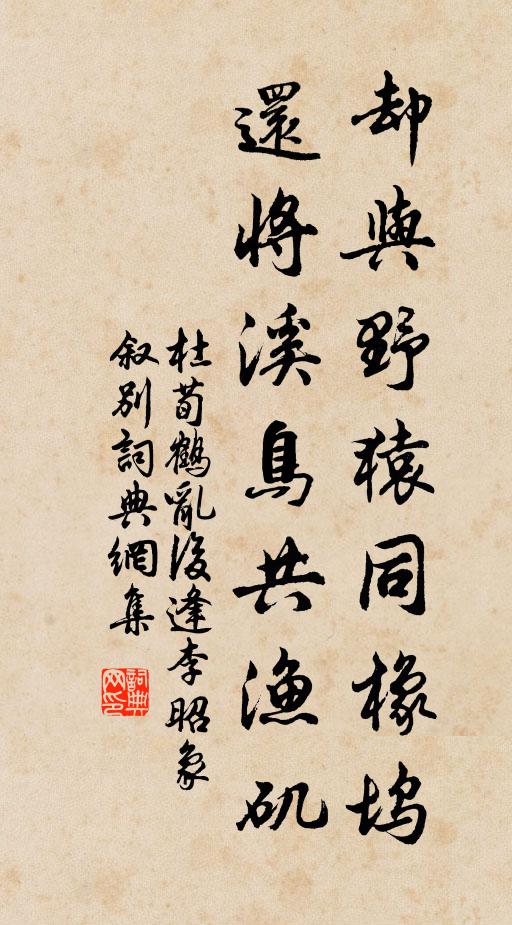 却與野猿同橡塢
還將溪鳥共漁矶
杜荀鶴亂後逢李昭象
叙別詞典網集
詞典
网印